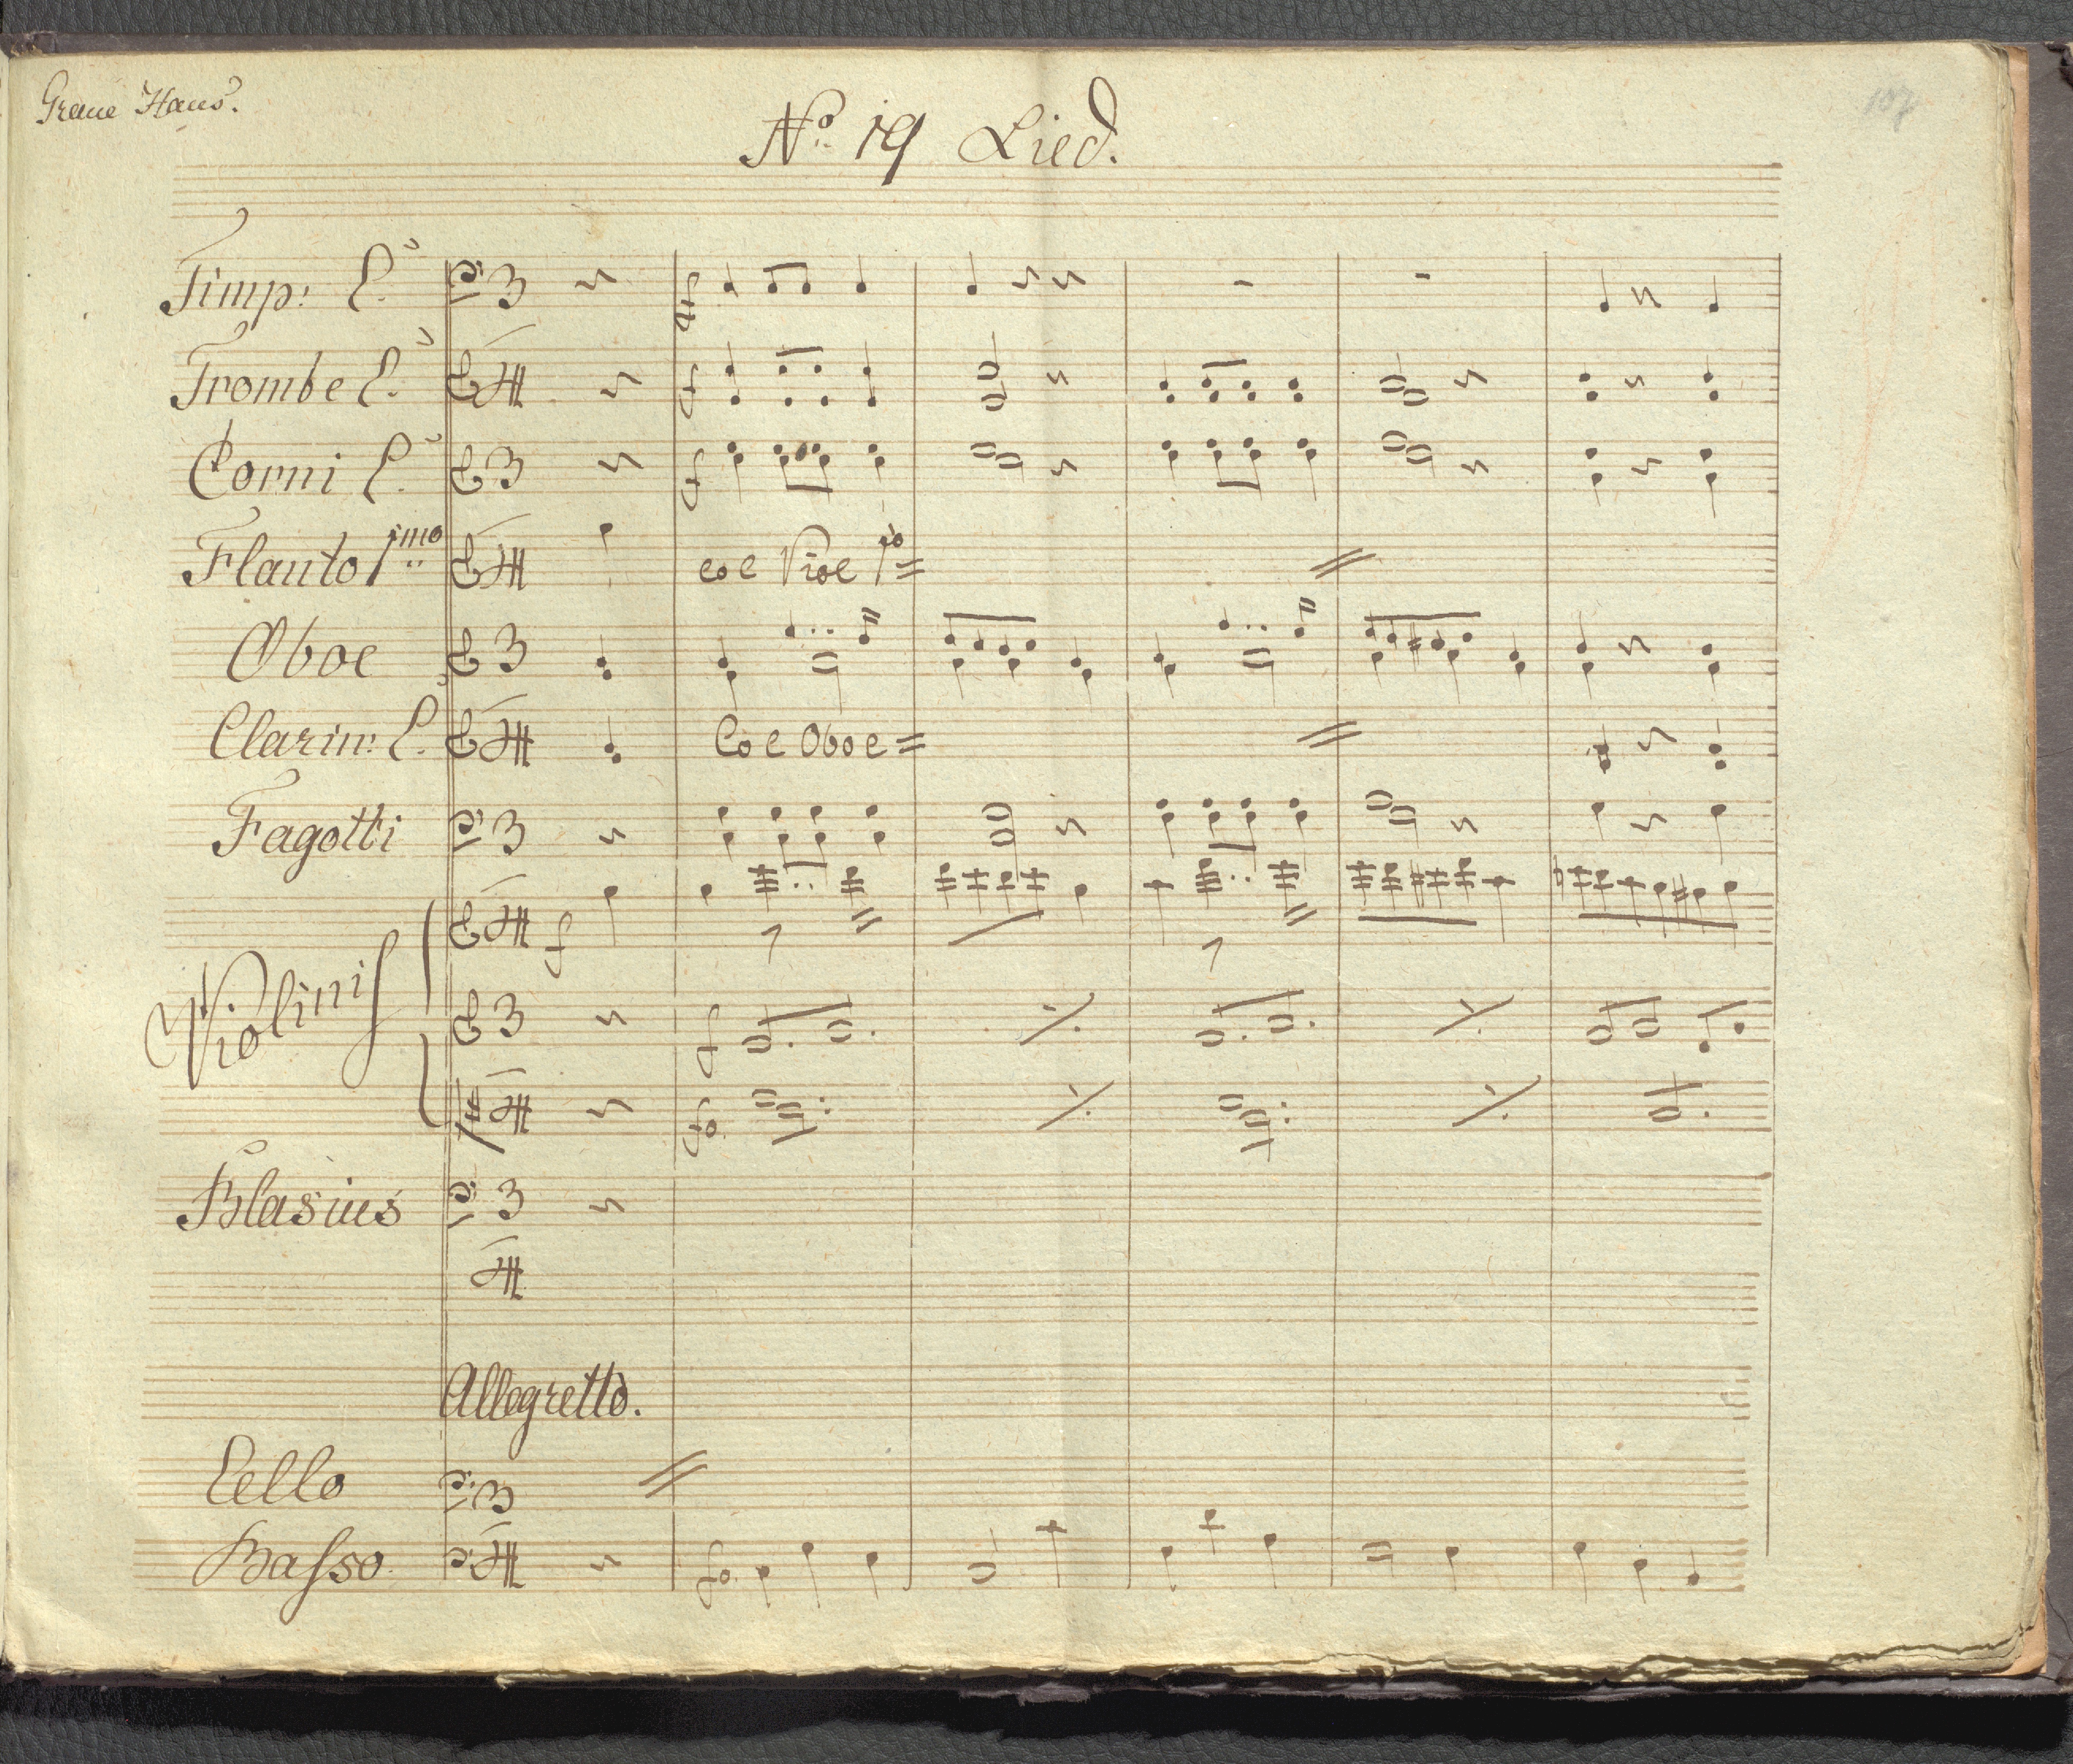 Graue Haus.
107
No. 19 Lied.
Timp: C.
Trombe C.
Corni C.
Flauto 1mo
col Viol 1o
Oboe
Clarin: C.
Col Oboe
Fagotti
f
Violini
f
fo
Blasius
Allegretto.
Cello
Basso.
fo.